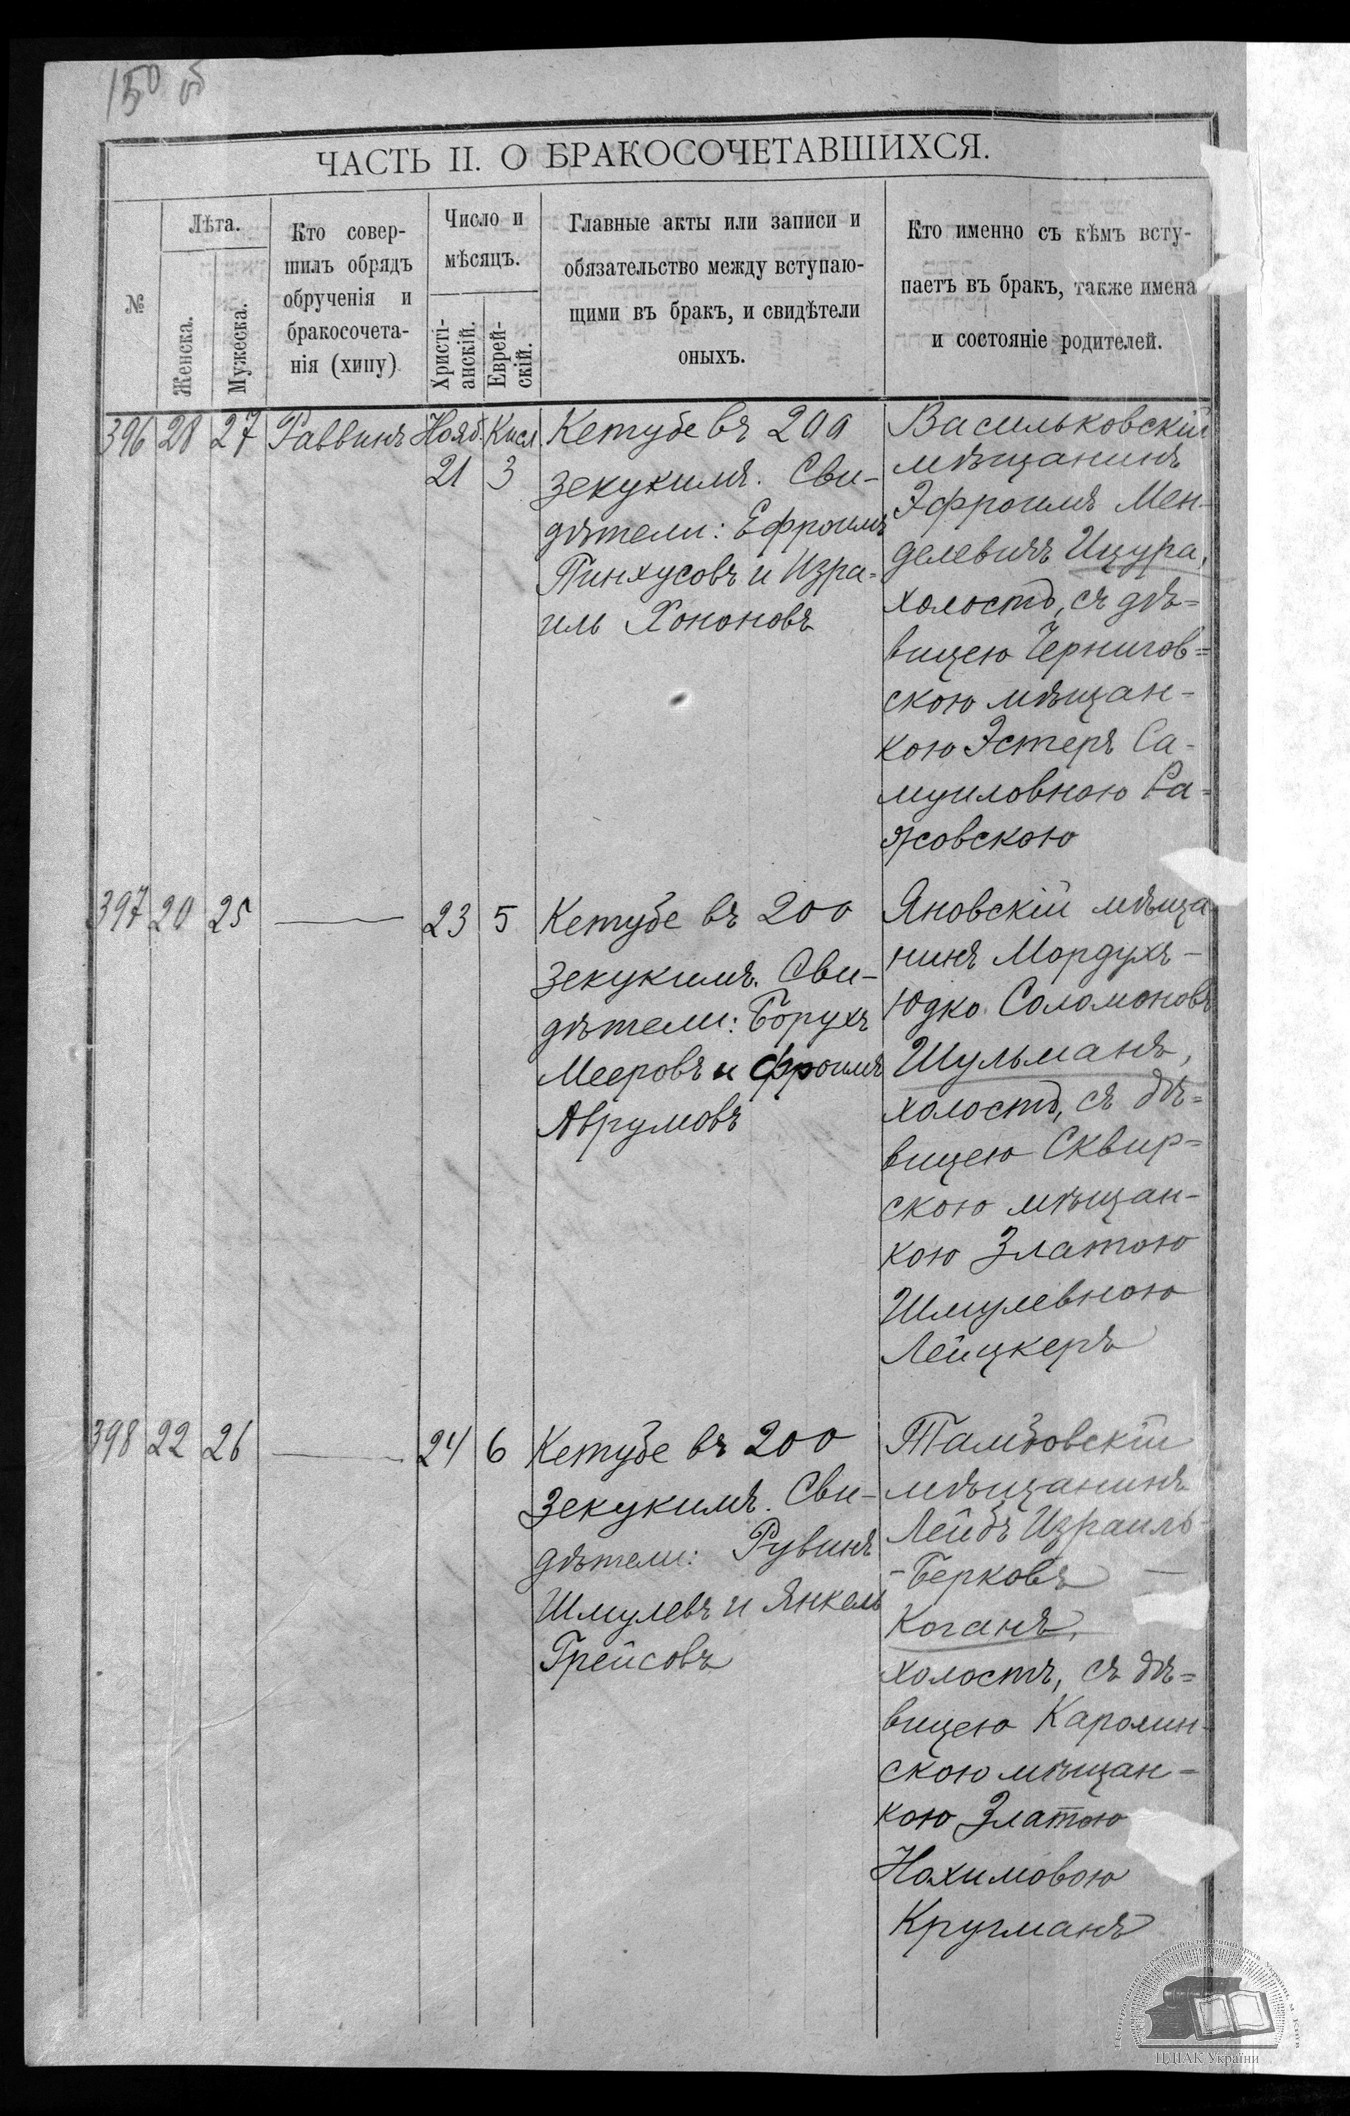 150 об
ЧАСТЬ II. О БРАКОСОЧЕТАВШИХСЯ.
№
Лѣта.
Женска.
Мужеска.
Кто совер-
шилъ обрядъ
обрученія и
бракосочета-
нія (хипу)
Число и
мѣсяцъ.
Христі-
анскій.
Еврей-
скій.
Главные акты или записи и
обязательство между вступаю-
щими въ бракъ, и свидѣтели
оныхъ.
Кто именно съ кѣмъ всту-
паетъ въ бракъ, также имена
и состояніе родителей.
396 28 27 Раввинъ Нояб. Кисл
21 3
Кетубе въ 200
зекукимъ. Сви-
дѣтели: Ефроимъ
Пинхусовъ и Изра-
иль Хононовъ
Васильковскій
мѣщанинъ
Эфроимъ Мен-
делевичъ Ицура,
холостъ, съ дѣ-
вицею Чернигов-
скою мѣщан-
кою Эстеръ Са-
муиловною Ра-
жовскою
397 20 25 — 23 5
Кетубе въ 200
зекукимъ. Сви-
дѣтели: Борухъ
Мееровъ и Фроимъ
Аврумовъ
Яновскій мѣща
нинъ Мордухъ-
Юдко Соломоновъ
Шульманъ,
холостъ, съ дѣ-
вицею Сквир-
скою мѣщан-
кою Златою
Шмулевною
Лейцкеръ
398 22 26 — 24 6
Кетубе въ 200
Зекукимъ. Сви-
дѣтели: Рувинъ
Шмулевъ и Янкель
Грейсовъ
Тамбовскій
мѣщанинъ
Лейбъ Израиль-
-Берковъ —
Коганъ,
холостъ, съ дѣ-
вицею Каролин-
скою мѣщан-
кою Златою
Нохимовою
Кругманъ
ЦДІАК України